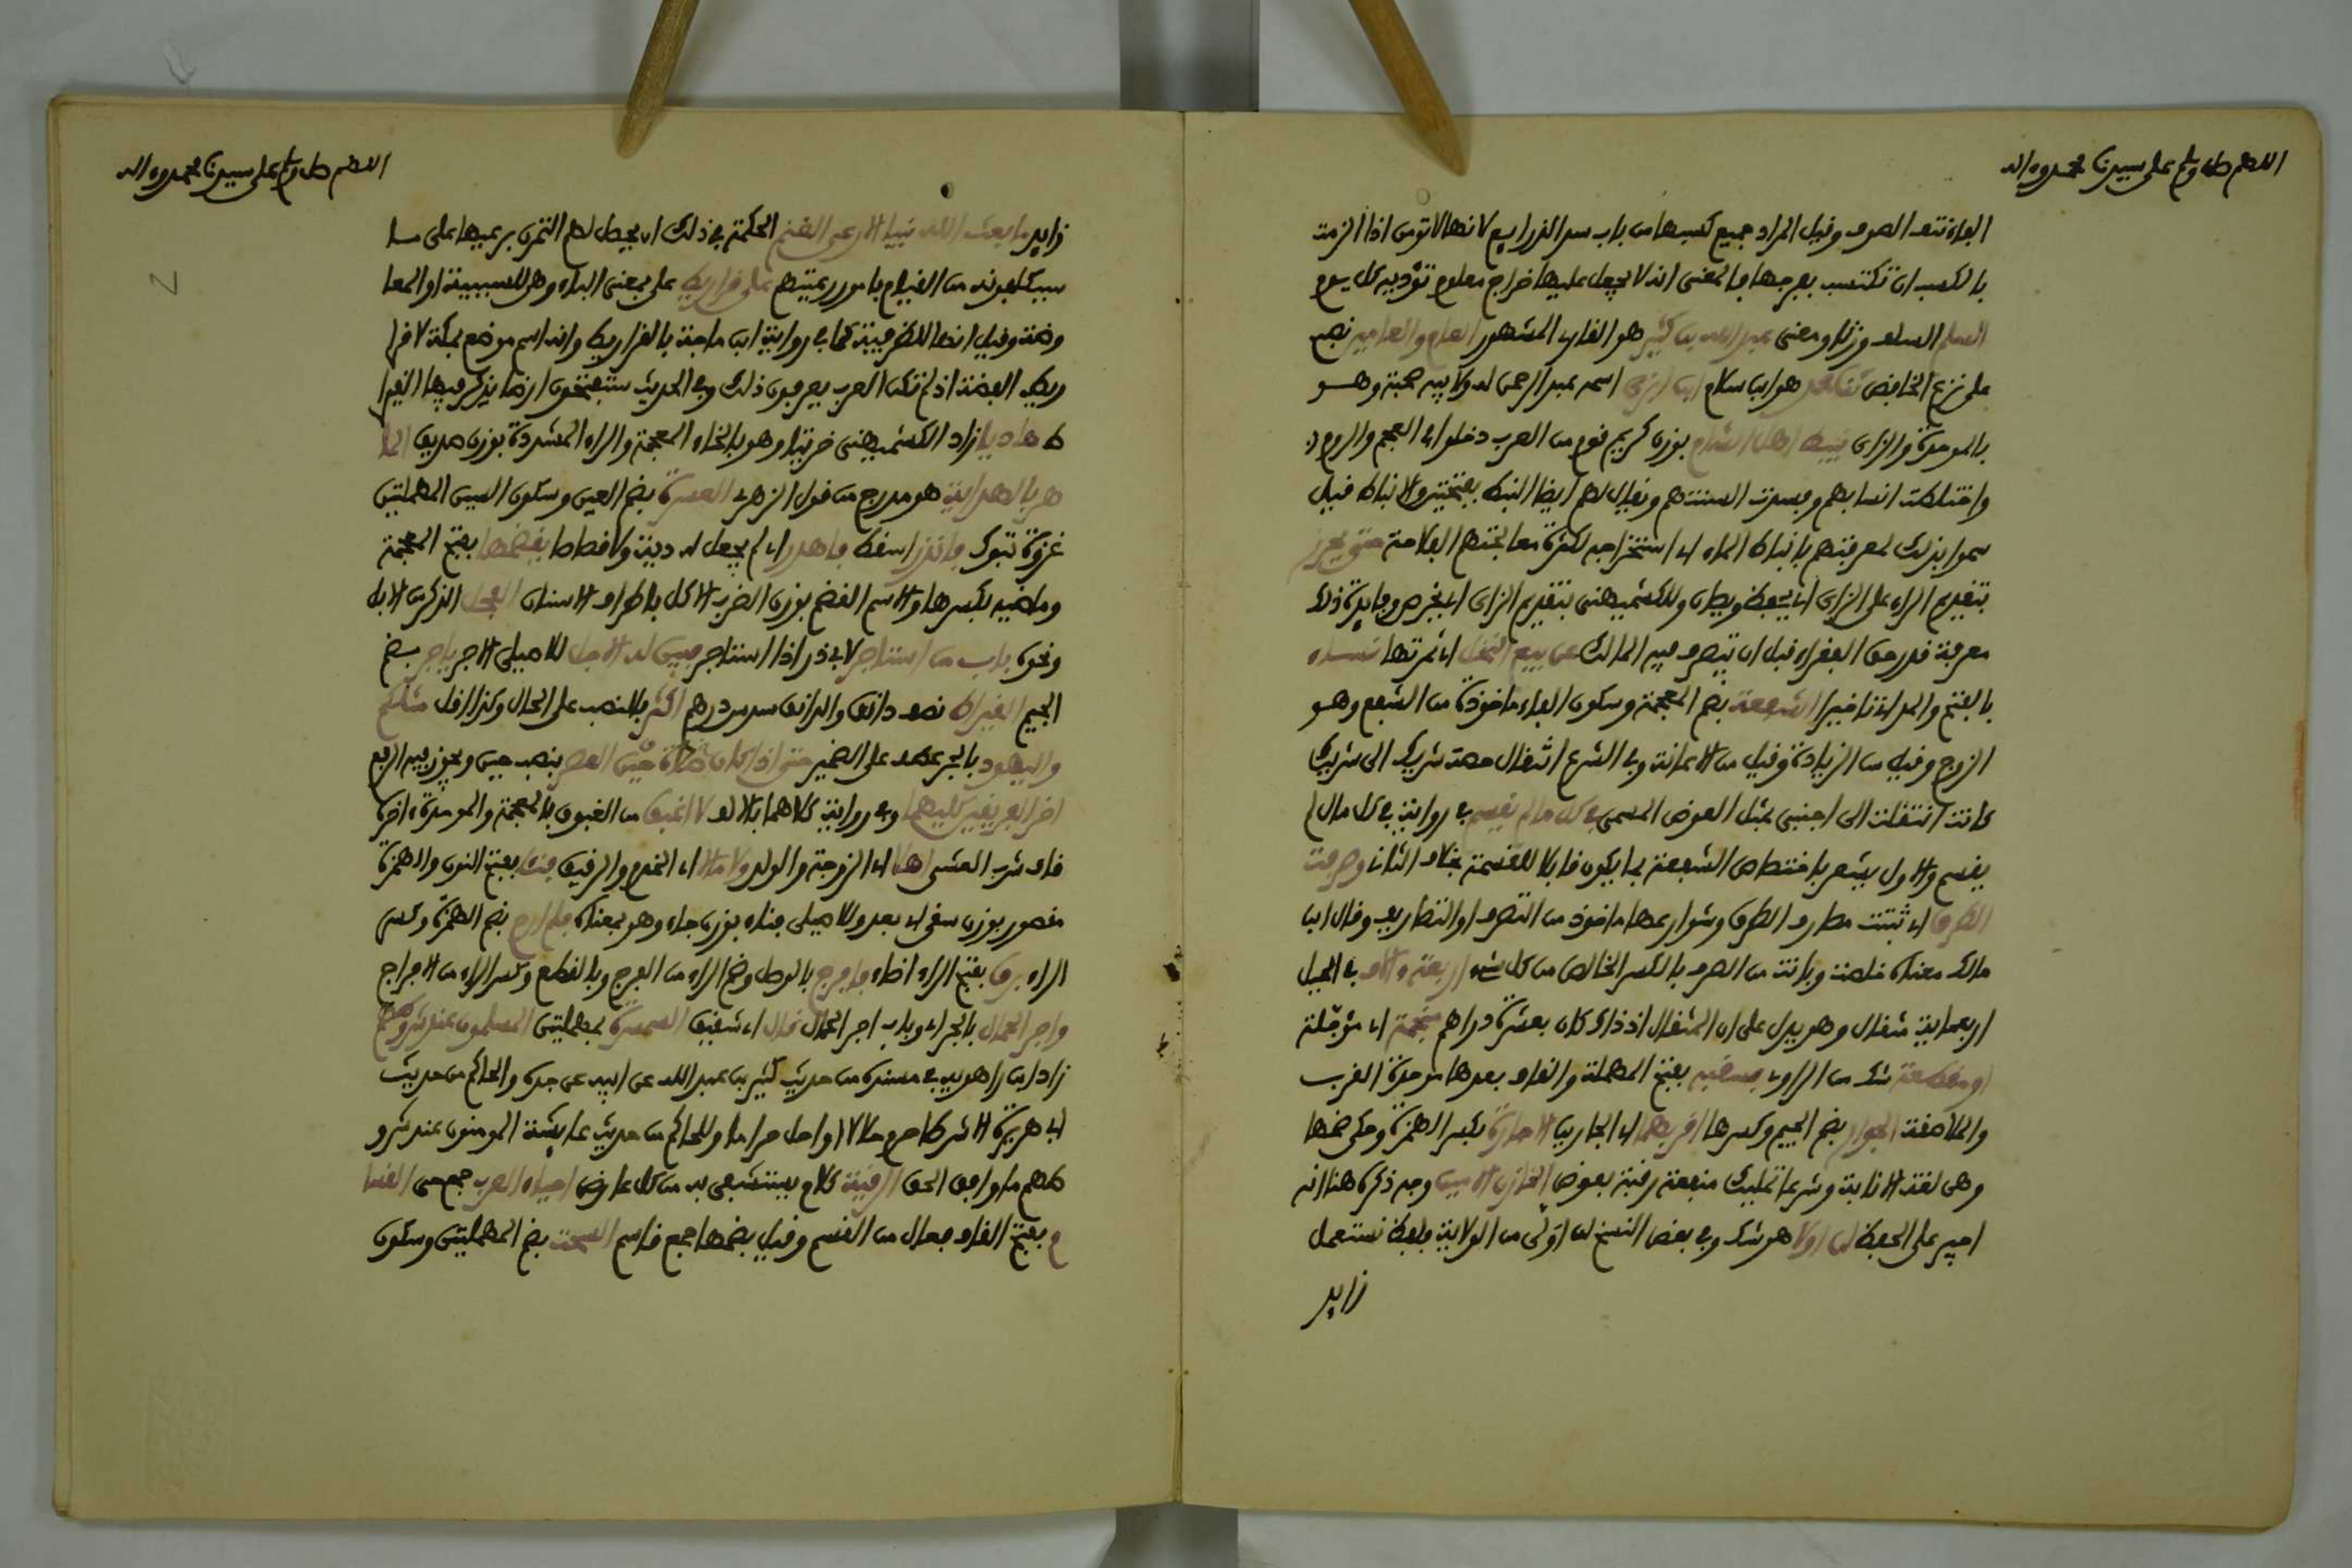 اللهم صل وسلم على سيدنا محمد وءاله
الفاء نتف الصوف وقيل المراد جميع كسبها من باب سد الذرايع لانها لا تومن اذا الزمت
بالكسب ان تكتسب بفرجها فالمعنى ان لا يجعل عليها خراج معلوم تؤديه كل يوم
السلم السلف وزنا ومعنى عبد الله بن كثير هو القارى المشهور العام والعامين نصب
على نزع الخافض هو ابن سلام ابن ابزى اسمه عبد الرحمن له ولابيه صحبة وهو
بالموحدة والزاى نبيط اهل الشام بوزن كريم قوم من العرب دخلوا في العجم والروم
واختلطت انسابهم وفسدت السنتهم ويقال لهم ايضا النبط بفتحتين والانباط قيل
سموا بذلك لمعرفتهم بانباط الماء اي استخراجه لكثرة معالجتهم الفلاحة حتى يحرز
بتقديم الراء على الزاى اي يحفظ ويصان وللكشميهنى بتقديم الزاى اي يخرص وفايدة ذلك
معرفة قدر حق الفقراء قبل ان يتصرف فيه المالك عن بيع النخل اي ثمرتها نساء
بالفتح والمد اي تاخيرا الشفعة بضم المعجمة وسكون الفاء ماخوذة من الشفع وهو
الزوج وقيل من الزيادة وقيل من الاعانة وفى الشرع انتقال حصة شريك الى شريك
كانت انتقلت الى اجنبى بمثل العوض المسمى فى كل ما لم يقسم فى رواية فى كل مال لم
يقسم والاول يشعر باختصاص الشفعة بما يكون قابلا للقسمة بخلاف الثانى وصرفت
الطرق اي ثبتت مصارف الطرق وشوارعها ماخوذ من التصرف او التصاريف وقال ابن
مالك معناه خلصت وبانت من الصرف بالكسر الخالص من كل شيء اربعة ءالاف فى الحيل
اربعماية مثقال وهو يدل على ان المثقال اذ ذاك كان بعشرة دراهم منجمة اي مؤجلة
او مقطعة شك من الراوى بصقبه بفتح المهملة والقاف بعدها موحدة القرب
والملاصقة الجوار بضم الجيم وكسرها اقربهما اي الجارين الاجارة بكسر الهمزة وحكى ضمها
وهى لغة الاثابة وشرعا تمليك منفعة رقبة بعوض الخازن الامين وجه ذكره هنا انه
امير على الحفظ لن اولا هو شك وفى بعض النسخ لن أولى من الولاية ولفظ نستعمل
زايد
اللهم صل وسلم على سيدنا محمد وءاله
زايد ما بعث الله نبيا الا رعى الغنم الحكمة فى ذلك ان يحصل لهم التمرن برعيها على ما
سيكلفونه من القيام بامور رعيتهم على قراريط على بمعنى الباء وهى للسببية او المعا
وضة وقيل انها للظرفية كما فى رواية ابن ماجة بالقراريط وانه اسم موضع بمكة لا قرا
ريط الفضة اذ لم تكن العرب يعرفون ذلك وفى الحديث ستفتحون ارضا يذكر فيها القيرا
ط هاديا زاد الكشميهنى خريتا وهو بالخاء المعجمة والراء المشددة بوزن صديق الما
هر بالهداية هو مدرج من قول الزهرى العسرة بضم العين وسكون السين المهملتين
غزوة تبوك فاندر اسقط فاهدر اي لم يجعل له دية ولا قصاصا يقضمها بفتح المعجمة
وماضيه بكسرها والاسم القضم بوزن الضرب الاكل باطراف الاسنان الفحل الذكر من الابل
ونحوه باب من استاجر لابى ذر اذا استاجر فبين له الاجل للاصيلى الاجر ياجر بضم
الجيم القيراط نصف دانق والدانق سدس درهم اكثر بالنصب على الحال وكذا اقل مثلكم
واليهود بالجر عطف على الضمير حتى اذا كان صلاة حين العصر بنصب حين ويجوز فيه الرفع
اخر الفريقين كليهما وفى رواية كلاهما بالالف لا اغبق من الغبوق بالمعجمة والموحدة ءاخره
قاف شرب العشى اهلا اي الزوجة والولد ولا مالا اي الخدم والرقيق فنأى بفتح النون والهمزة
مقصور بوزن سعى اي بعد وللاصيلى فناء بوزن جاء وهو بمعناه فلم ارح بضم الهمزة وكسر
الراء برق بفتح الراء اضاء فافرج بالوصل وضم الراء من الفرج وبالقطع وكسر الراء من الافراج
واجر الحمال بالجر اي وباب اجر الحمال قال اي شقيق السمسرة بمهملتين المسلمون عند شروطهم
زاد ابن راهويه فى مسنده من حديث كثير بن عبد الله عن ابيه عن جده والحاكم من حديث
ابى هريرة الا شرطا حرم حلالا او احل حراما وللحاكم من حديث عايشة المومنون عند شرو
طهم ما وافق الحق الرقية كلام يستشفى به من كل عارض احياء العرب جمع حى القسا
م بفتح القاف فعال من القسم وقيل بضمها جمع قاسم السحت بضم المهملتين وسكون